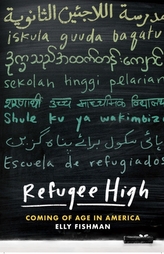 مدرسة اللاجئين الثانوية
iskula guuda baqatu
ဒုက္ခသည်အထက်တန်းကျောင်း
sekolah tinggi pelaria
शरणार्थी उच्च माध्यमिक विद्याल
Shule ku ya wakimbiz
ہائی سکول برائے پناہ گزین
Escuela de refugiados
Refugee High
COMING OF AGE IN AMERICA
ELLY FISHMAN